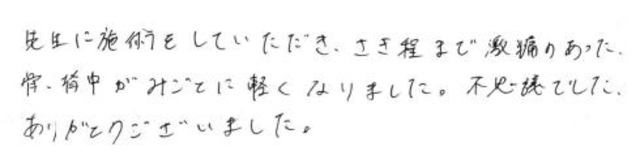 先生に施術をしていただき、さき程まで激痛のあった、
背中がみごとに軽くなりました。不思議でした、
ありがとうございました。